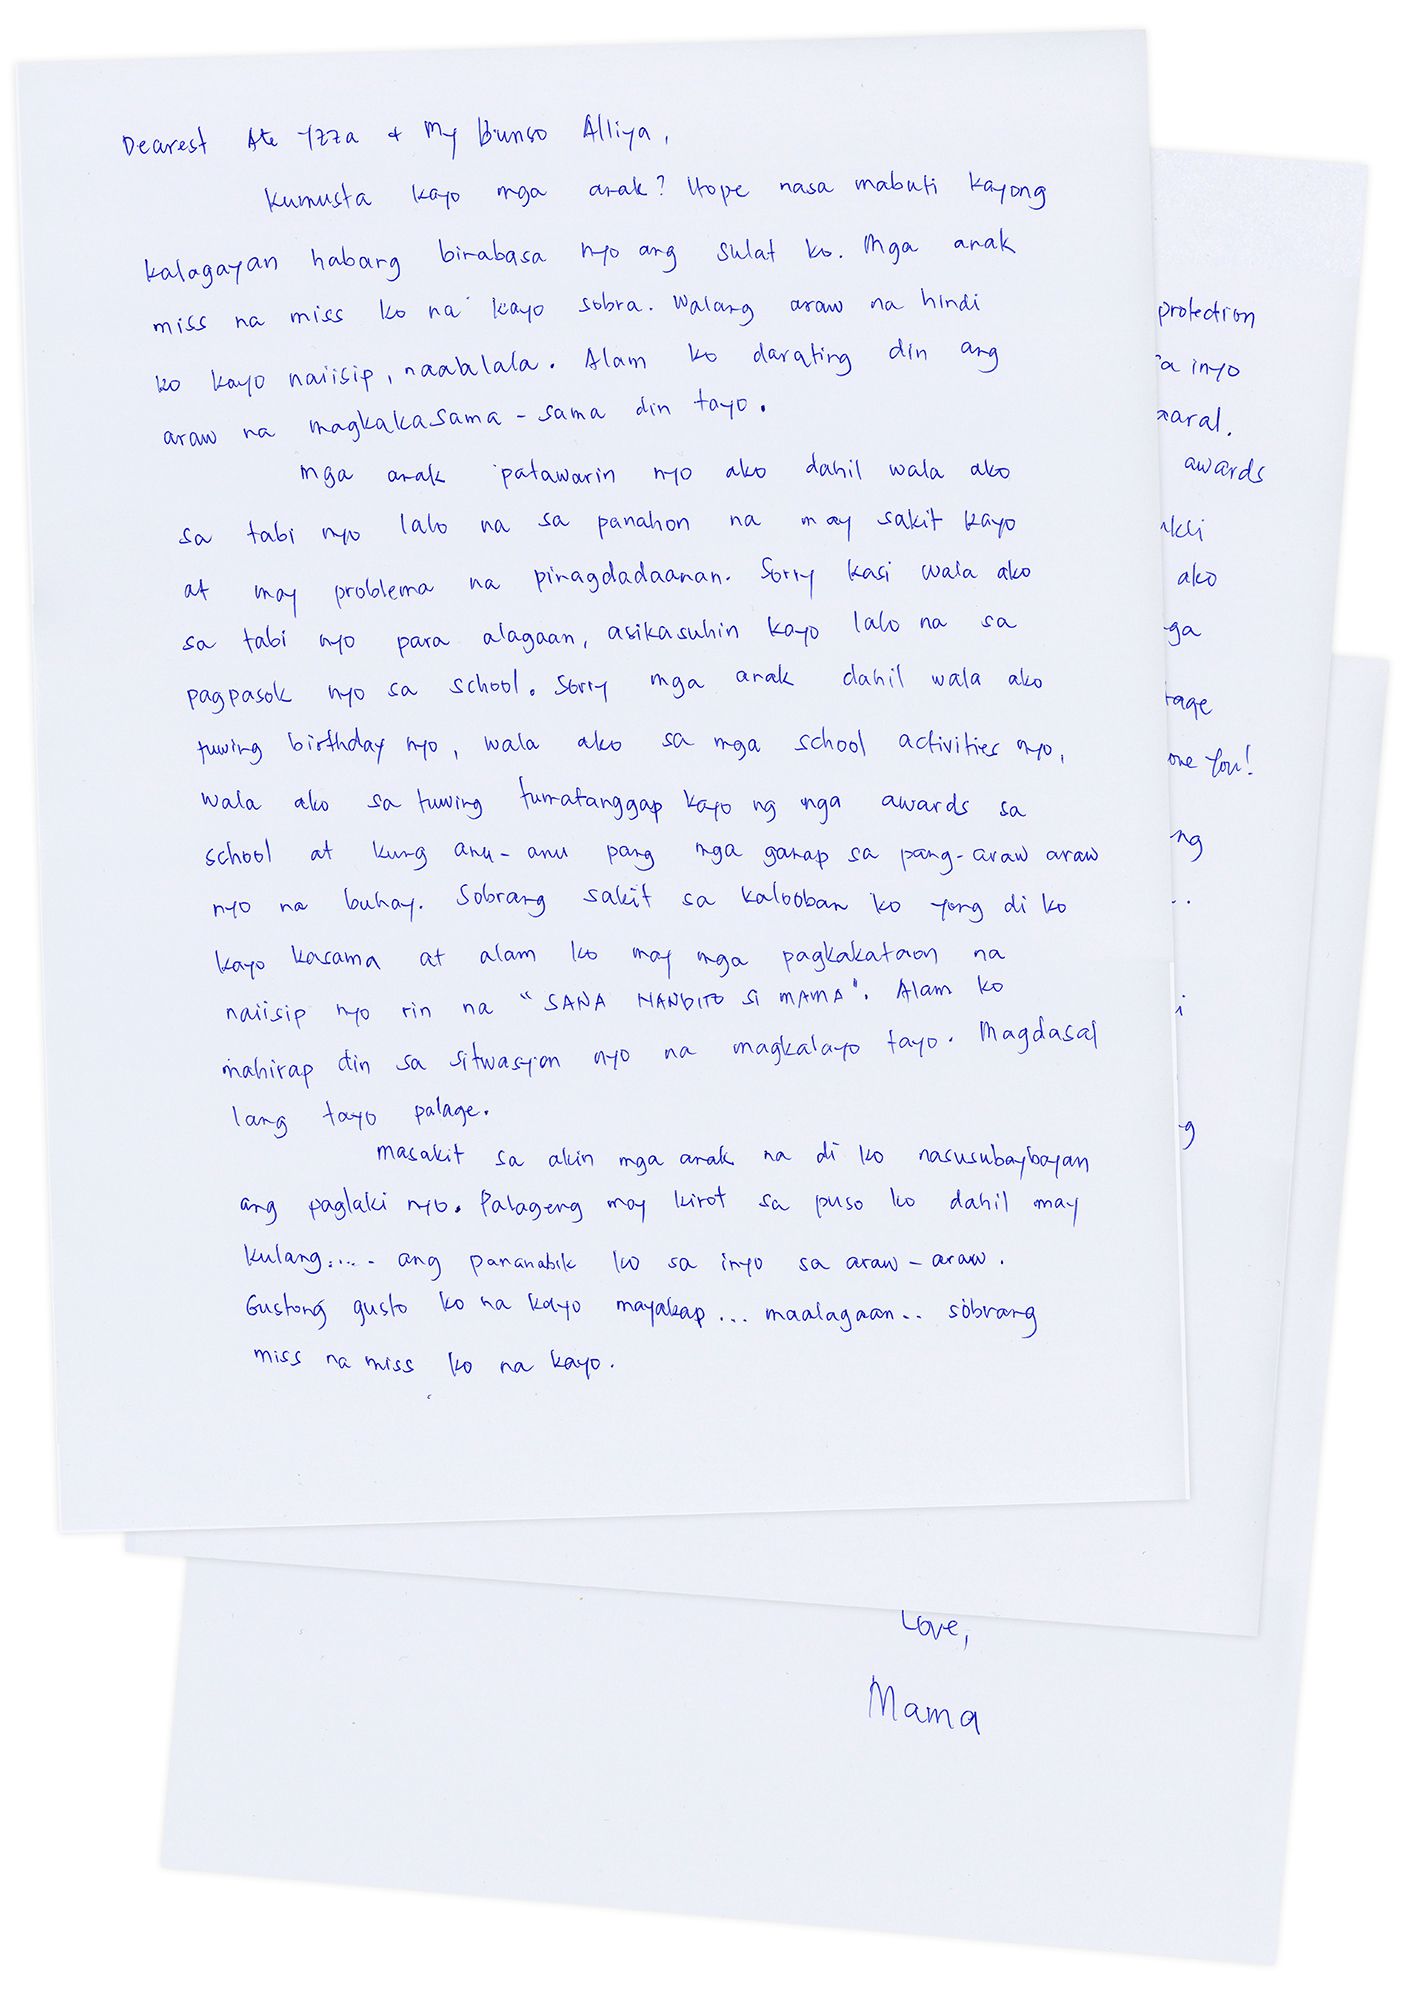 Dearest Ate Yzza + My Bunso Alliya,
Kumusta kayo mga anak? Hope nasa mabuti kayong
kalagayan habang binabasa nyo ang sulat ko. Mga anak
miss na miss ko na kayo sobra. Walang araw na hindi
ko kayo naiisip, naaalala. Alam ko darating din ang
araw na magkakasama - sama din tayo.
Mga anak patawarin nyo ako dahil wala ako
sa tabi nyo lalo na sa panahon na may sakit kayo
at may problema na pinagdadaanan. Sorry kasi wala ako
sa tabi nyo para alagaan, asikasuhin kayo lalo na sa
pagpasok nyo sa school. Sorry mga anak dahil wala ako
tuwing birthday nyo, wala ako sa mga school activities nyo,
wala ako sa tuwing tumatanggap kayo ng mga awards sa
school at kung anu-anu pang mga ganap sa pang-araw araw
nyo na buhay. Sobrang sakit sa kalooban ko yong di ko
kayo kasama at alam ko may mga pagkakataon na
naiisip nyo rin na "SANA NANDITO SI MAMA". Alam ko
mahirap din sa sitwasyon nyo na magkalayo tayo. Magdasal
lang tayo palage.
Masakit sa akin mga anak na di ko nasusubaybayan
ang paglaki nyo. Palageng may kirot sa puso ko dahil may
kulang..... ang pananabik ko sa inyo sa araw - araw.
Gustong gusto ko na kayo mayakap... maalagaan.. sobrang
miss na miss ko na kayo.
protection
inyo
awards
ako
You!
Love,
Mama